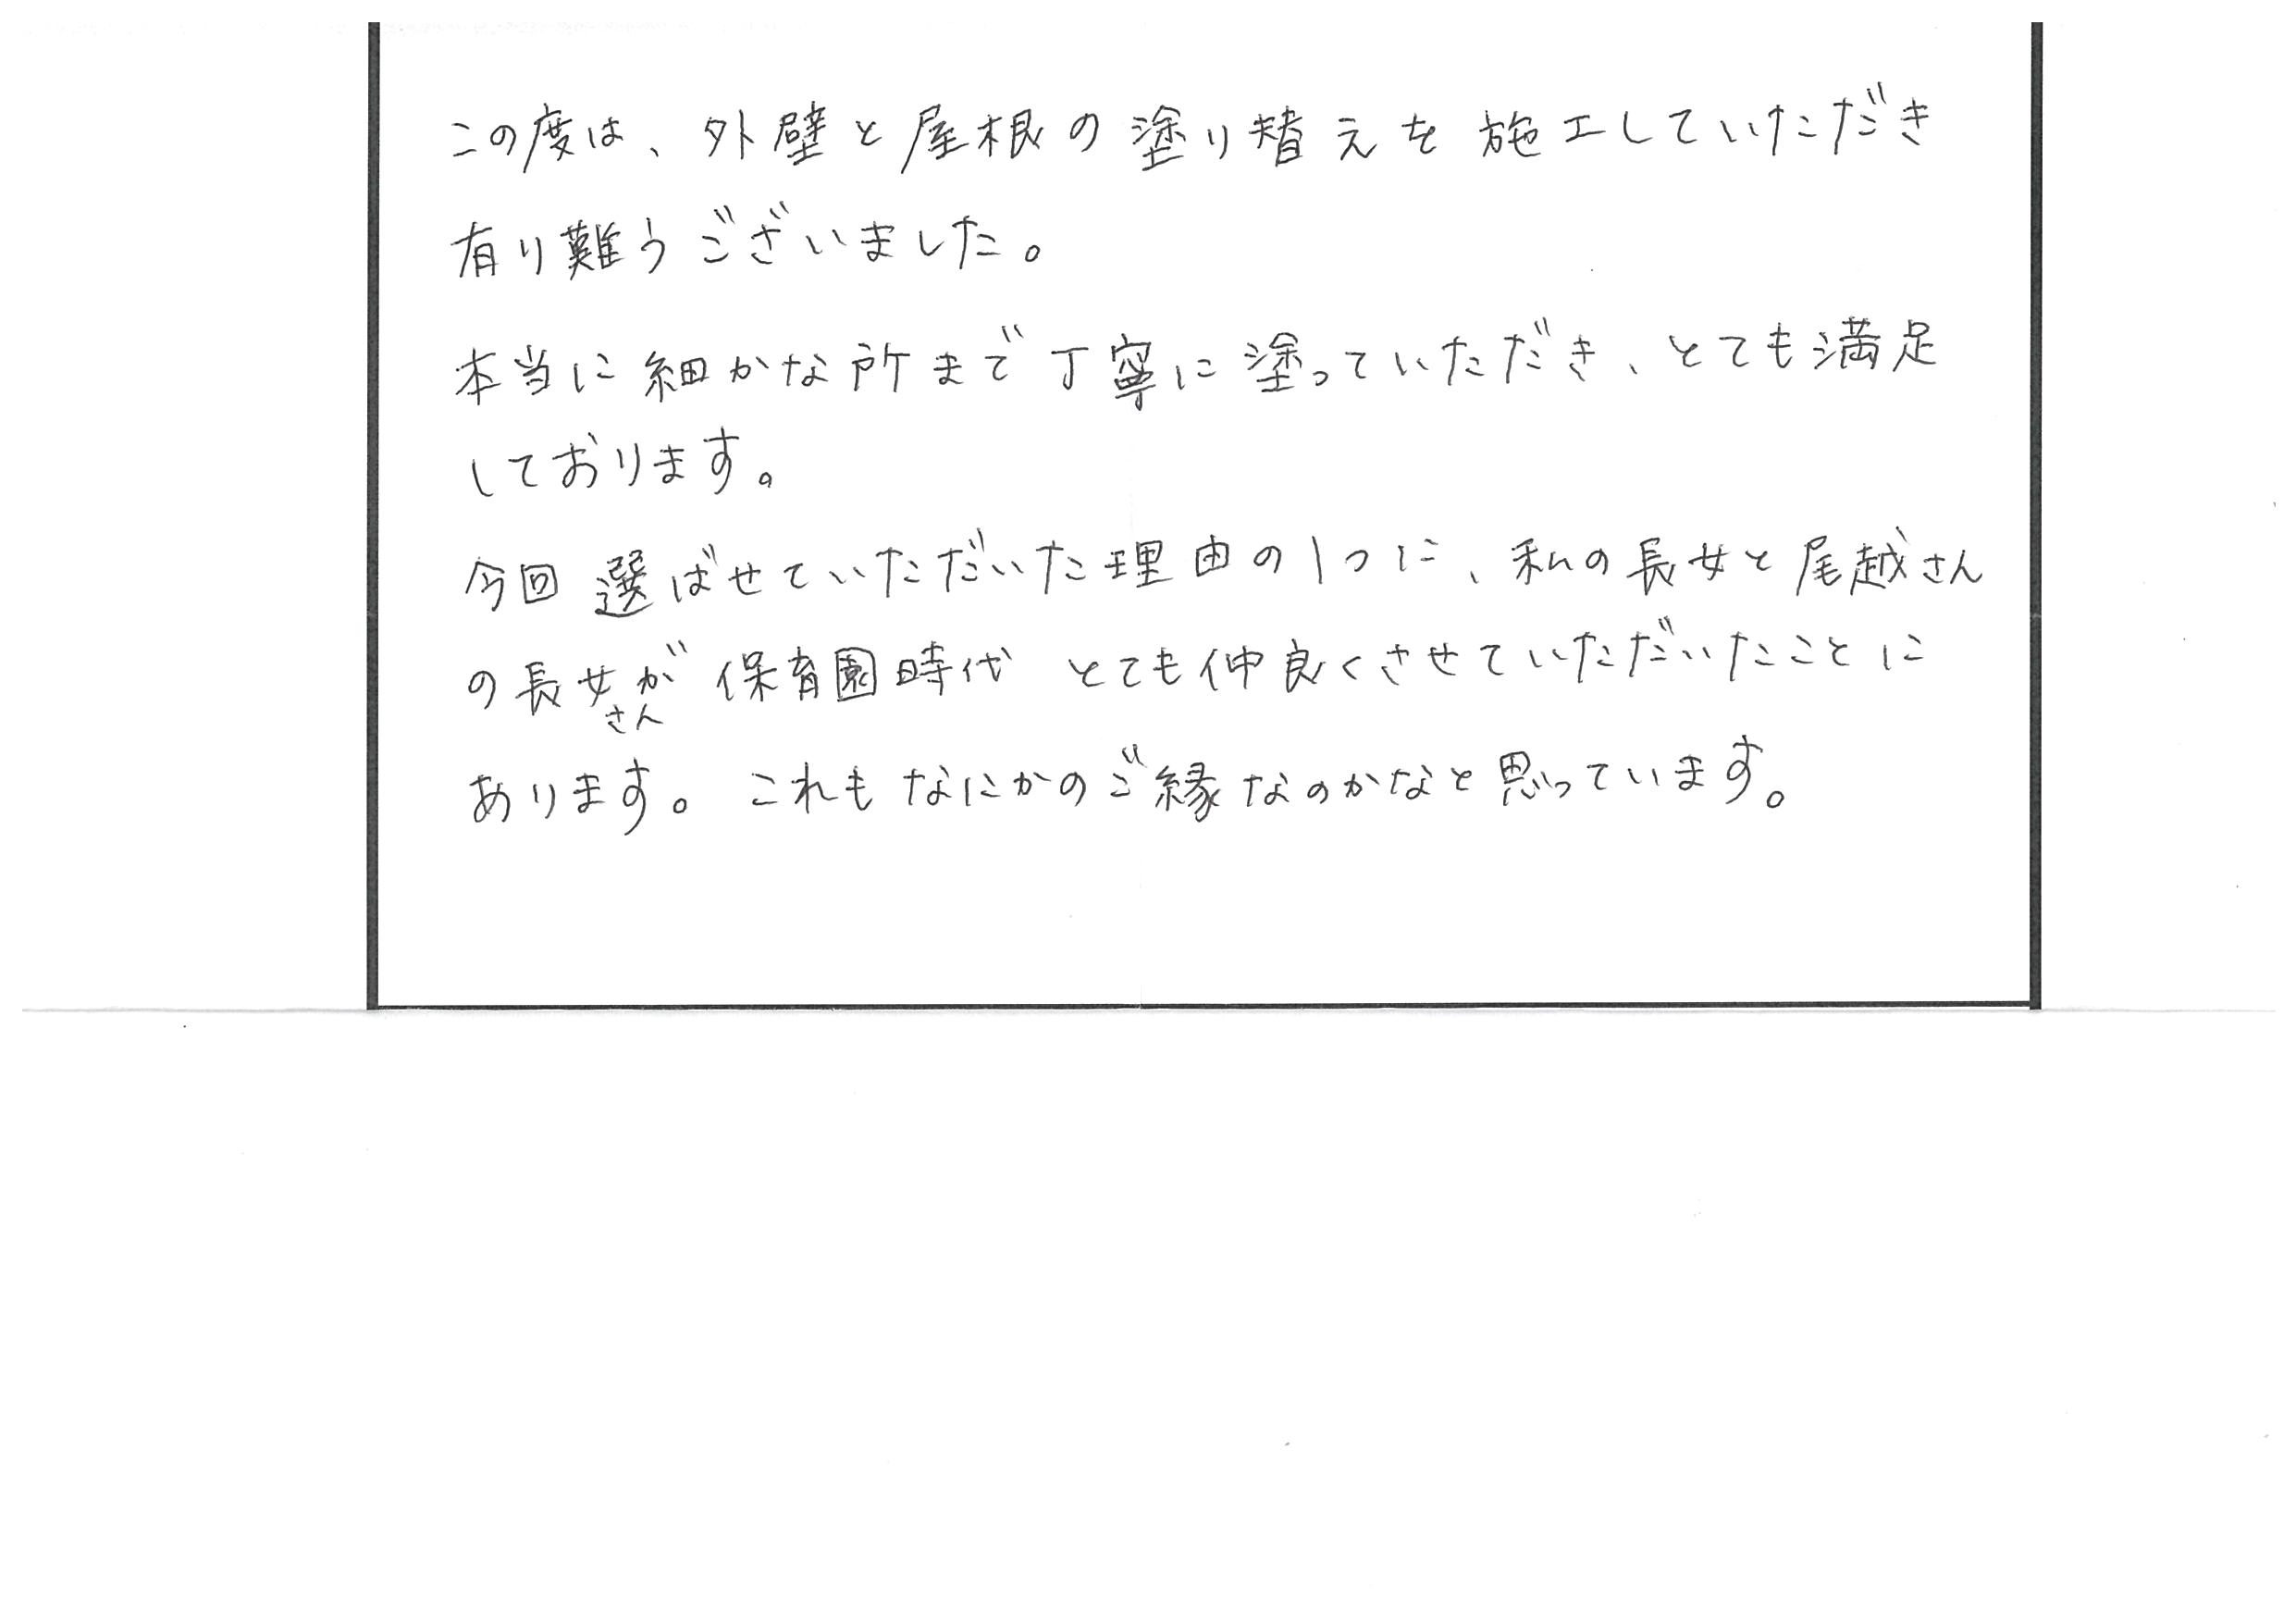 この度は、外壁と屋根の塗り替えを施工していただき
有り難うございました。
本当に細かな所まで丁寧に塗っていただき、とても満足
しております。
今回選ばせていただいた理由の1つに、私の長女と尾越さん
の長女さんが保育園時代 とても仲良くさせていただいたことに
あります。これもなにかのご縁なのかなと思っています。